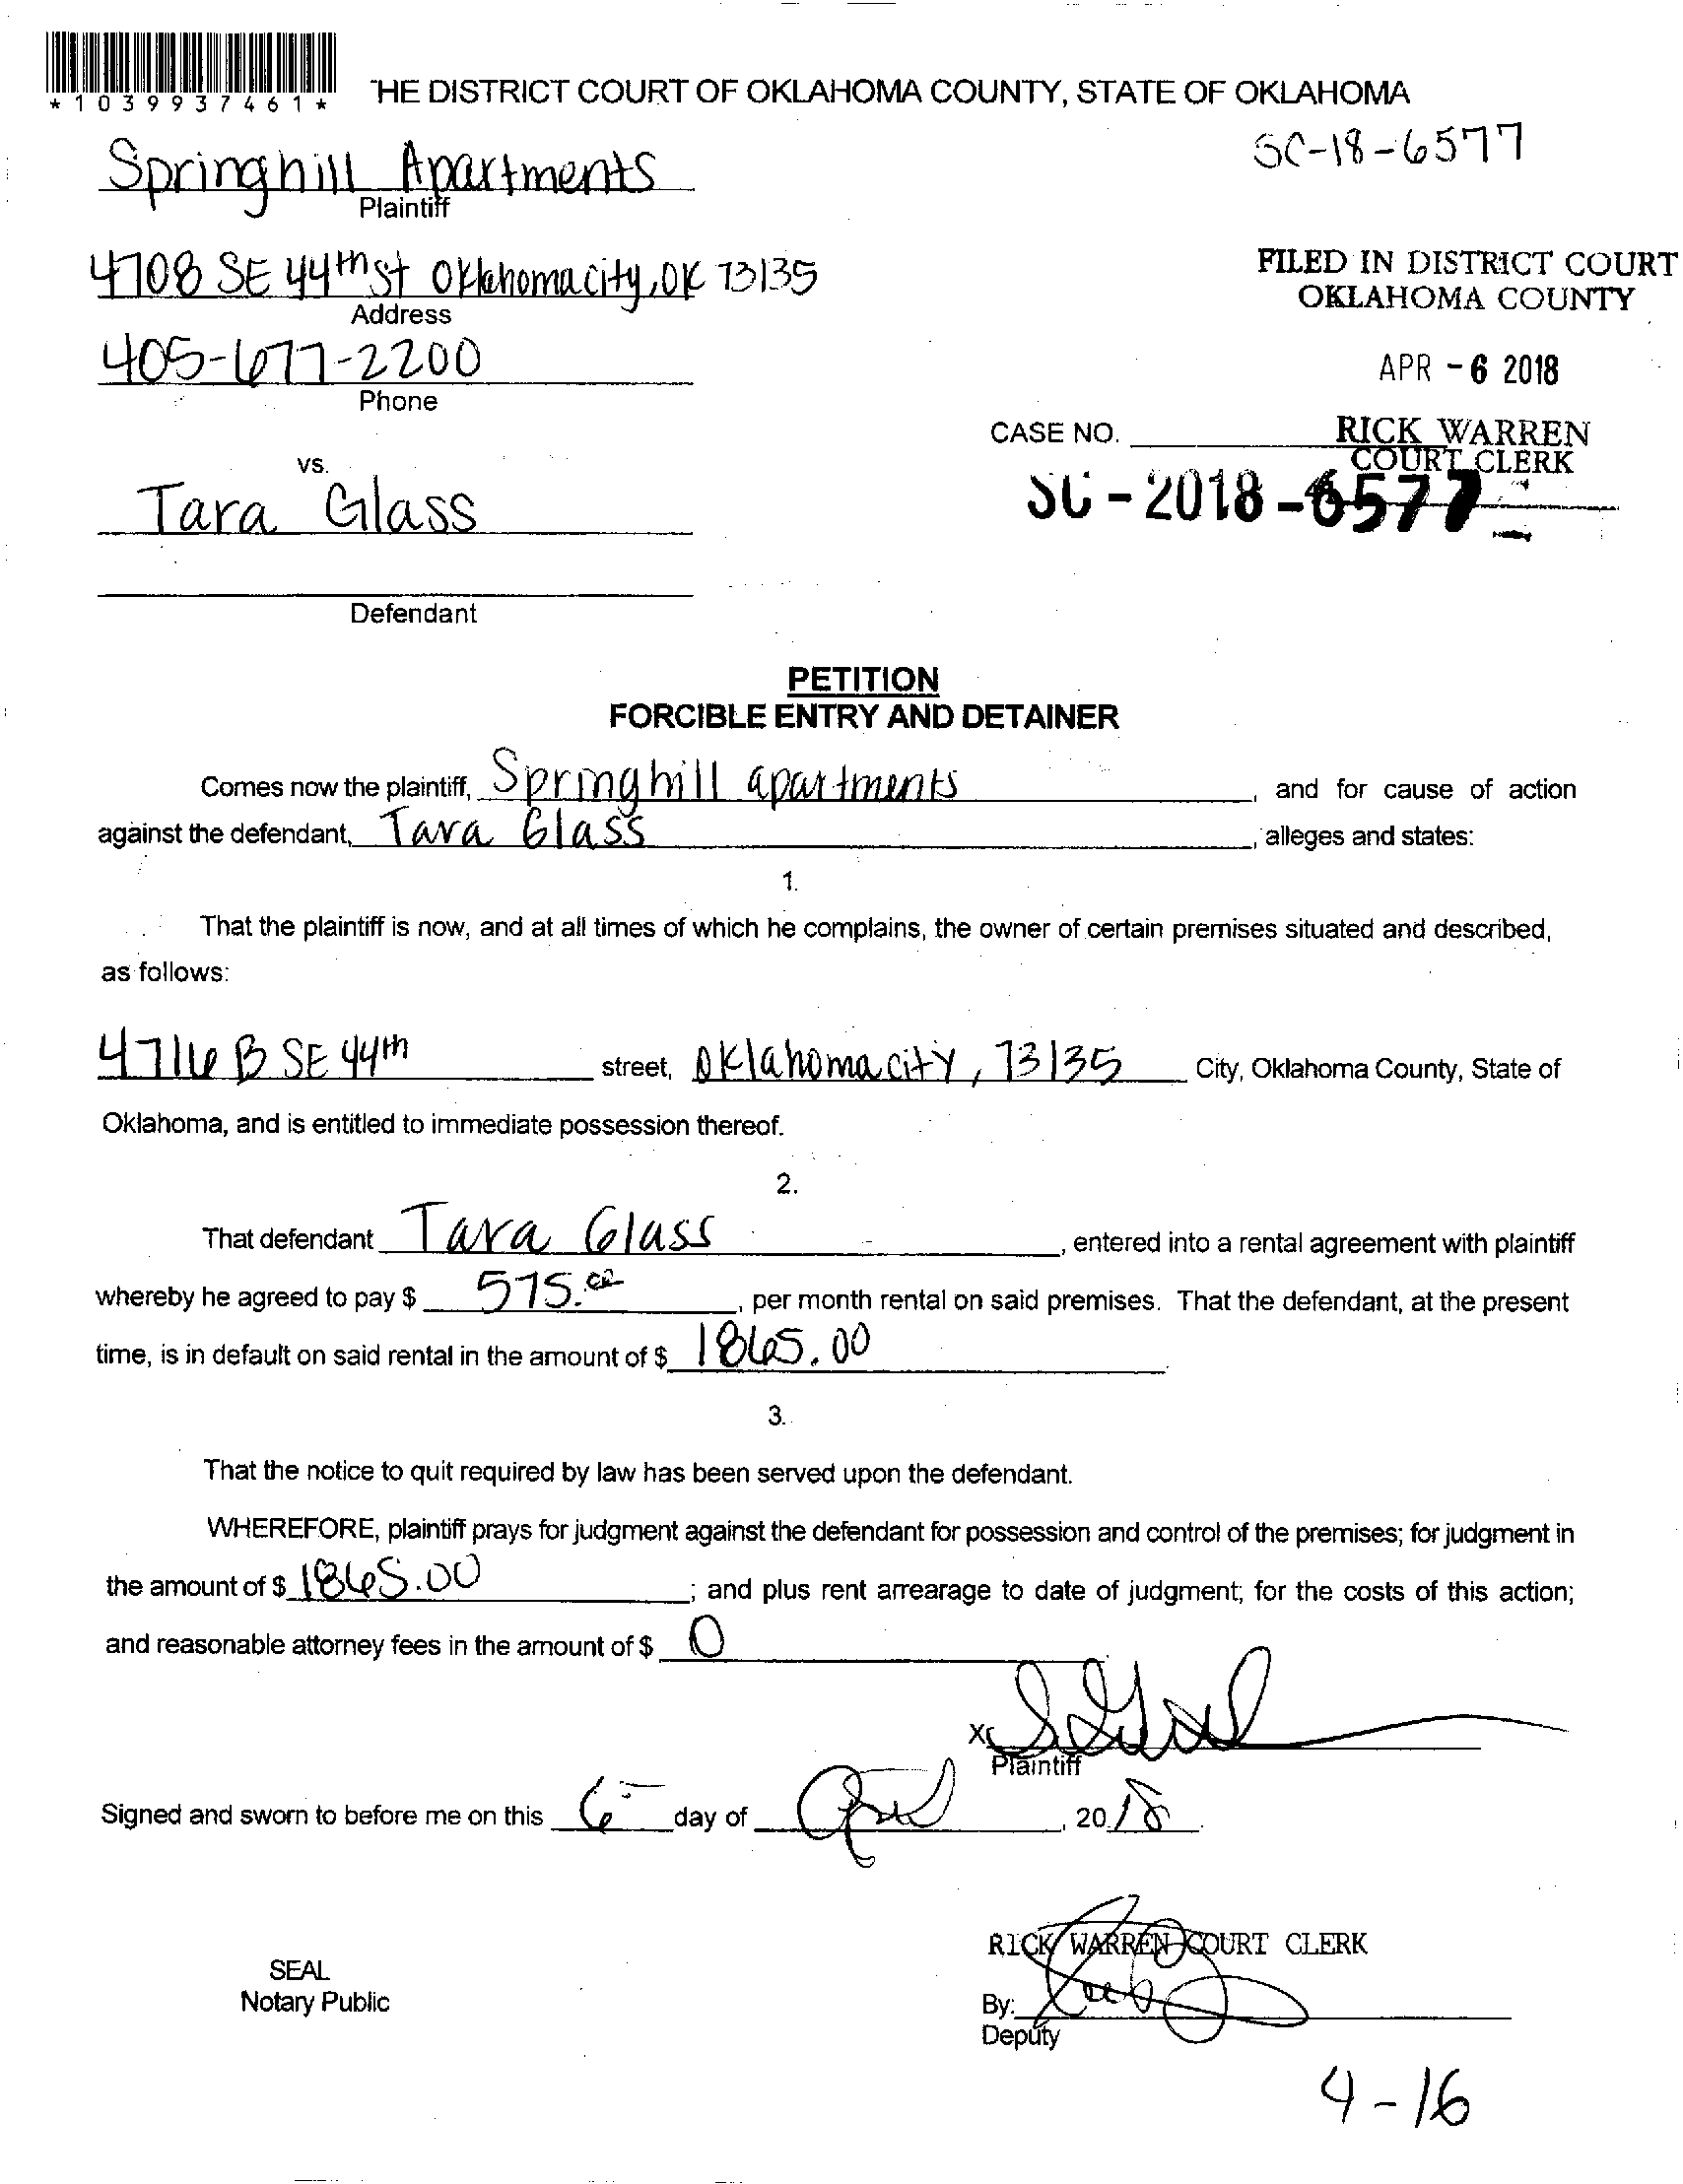 *1039937461*
THE DISTRICT COURT OF OKLAHOMA COUNTY, STATE OF OKLAHOMA
SC-18-6577
Springhill Apartments
Plaintiff
4708 SE 44th St Oklahoma city, OK 73135
Address
FILED IN DISTRICT COURT
OKLAHOMA COUNTY
405-677-2200
Phone
APR -6 2018
CASE NO.
RICK WARREN
COURT CLERK
vs.
SC-2018-6577
Tara Glass
Defendant
PETITION
FORCIBLE ENTRY AND DETAINER
Comes now the plaintiff, Springhill apartments, and for cause of action
against the defendant, Tara Glass, alleges and states:
1.
That the plaintiff is now, and at all times of which he complains, the owner of certain premises situated and described,
as follows:
4716 B SE 44th street, Oklahoma city, 73135 City, Oklahoma County, State of
Oklahoma, and is entitled to immediate possession thereof.
2.
That defendant Tara Glass, entered into a rental agreement with plaintiff
whereby he agreed to pay $ 575.00, per month rental on said premises. That the defendant, at the present
time, is in default on said rental in the amount of $ 1865.00
3.
That the notice to quit required by law has been served upon the defendant.
WHEREFORE, plaintiff prays for judgment against the defendant for possession and control of the premises; for judgment in
the amount of $ 1865.00; and plus rent arrearage to date of judgment; for the costs of this action;
and reasonable attorney fees in the amount of $ 0
X
Plaintiff
Signed and sworn to before me on this 6 day of April, 2018.
RICK WARREN COURT CLERK
SEAL
Notary Public
By:
Deputy
4-16